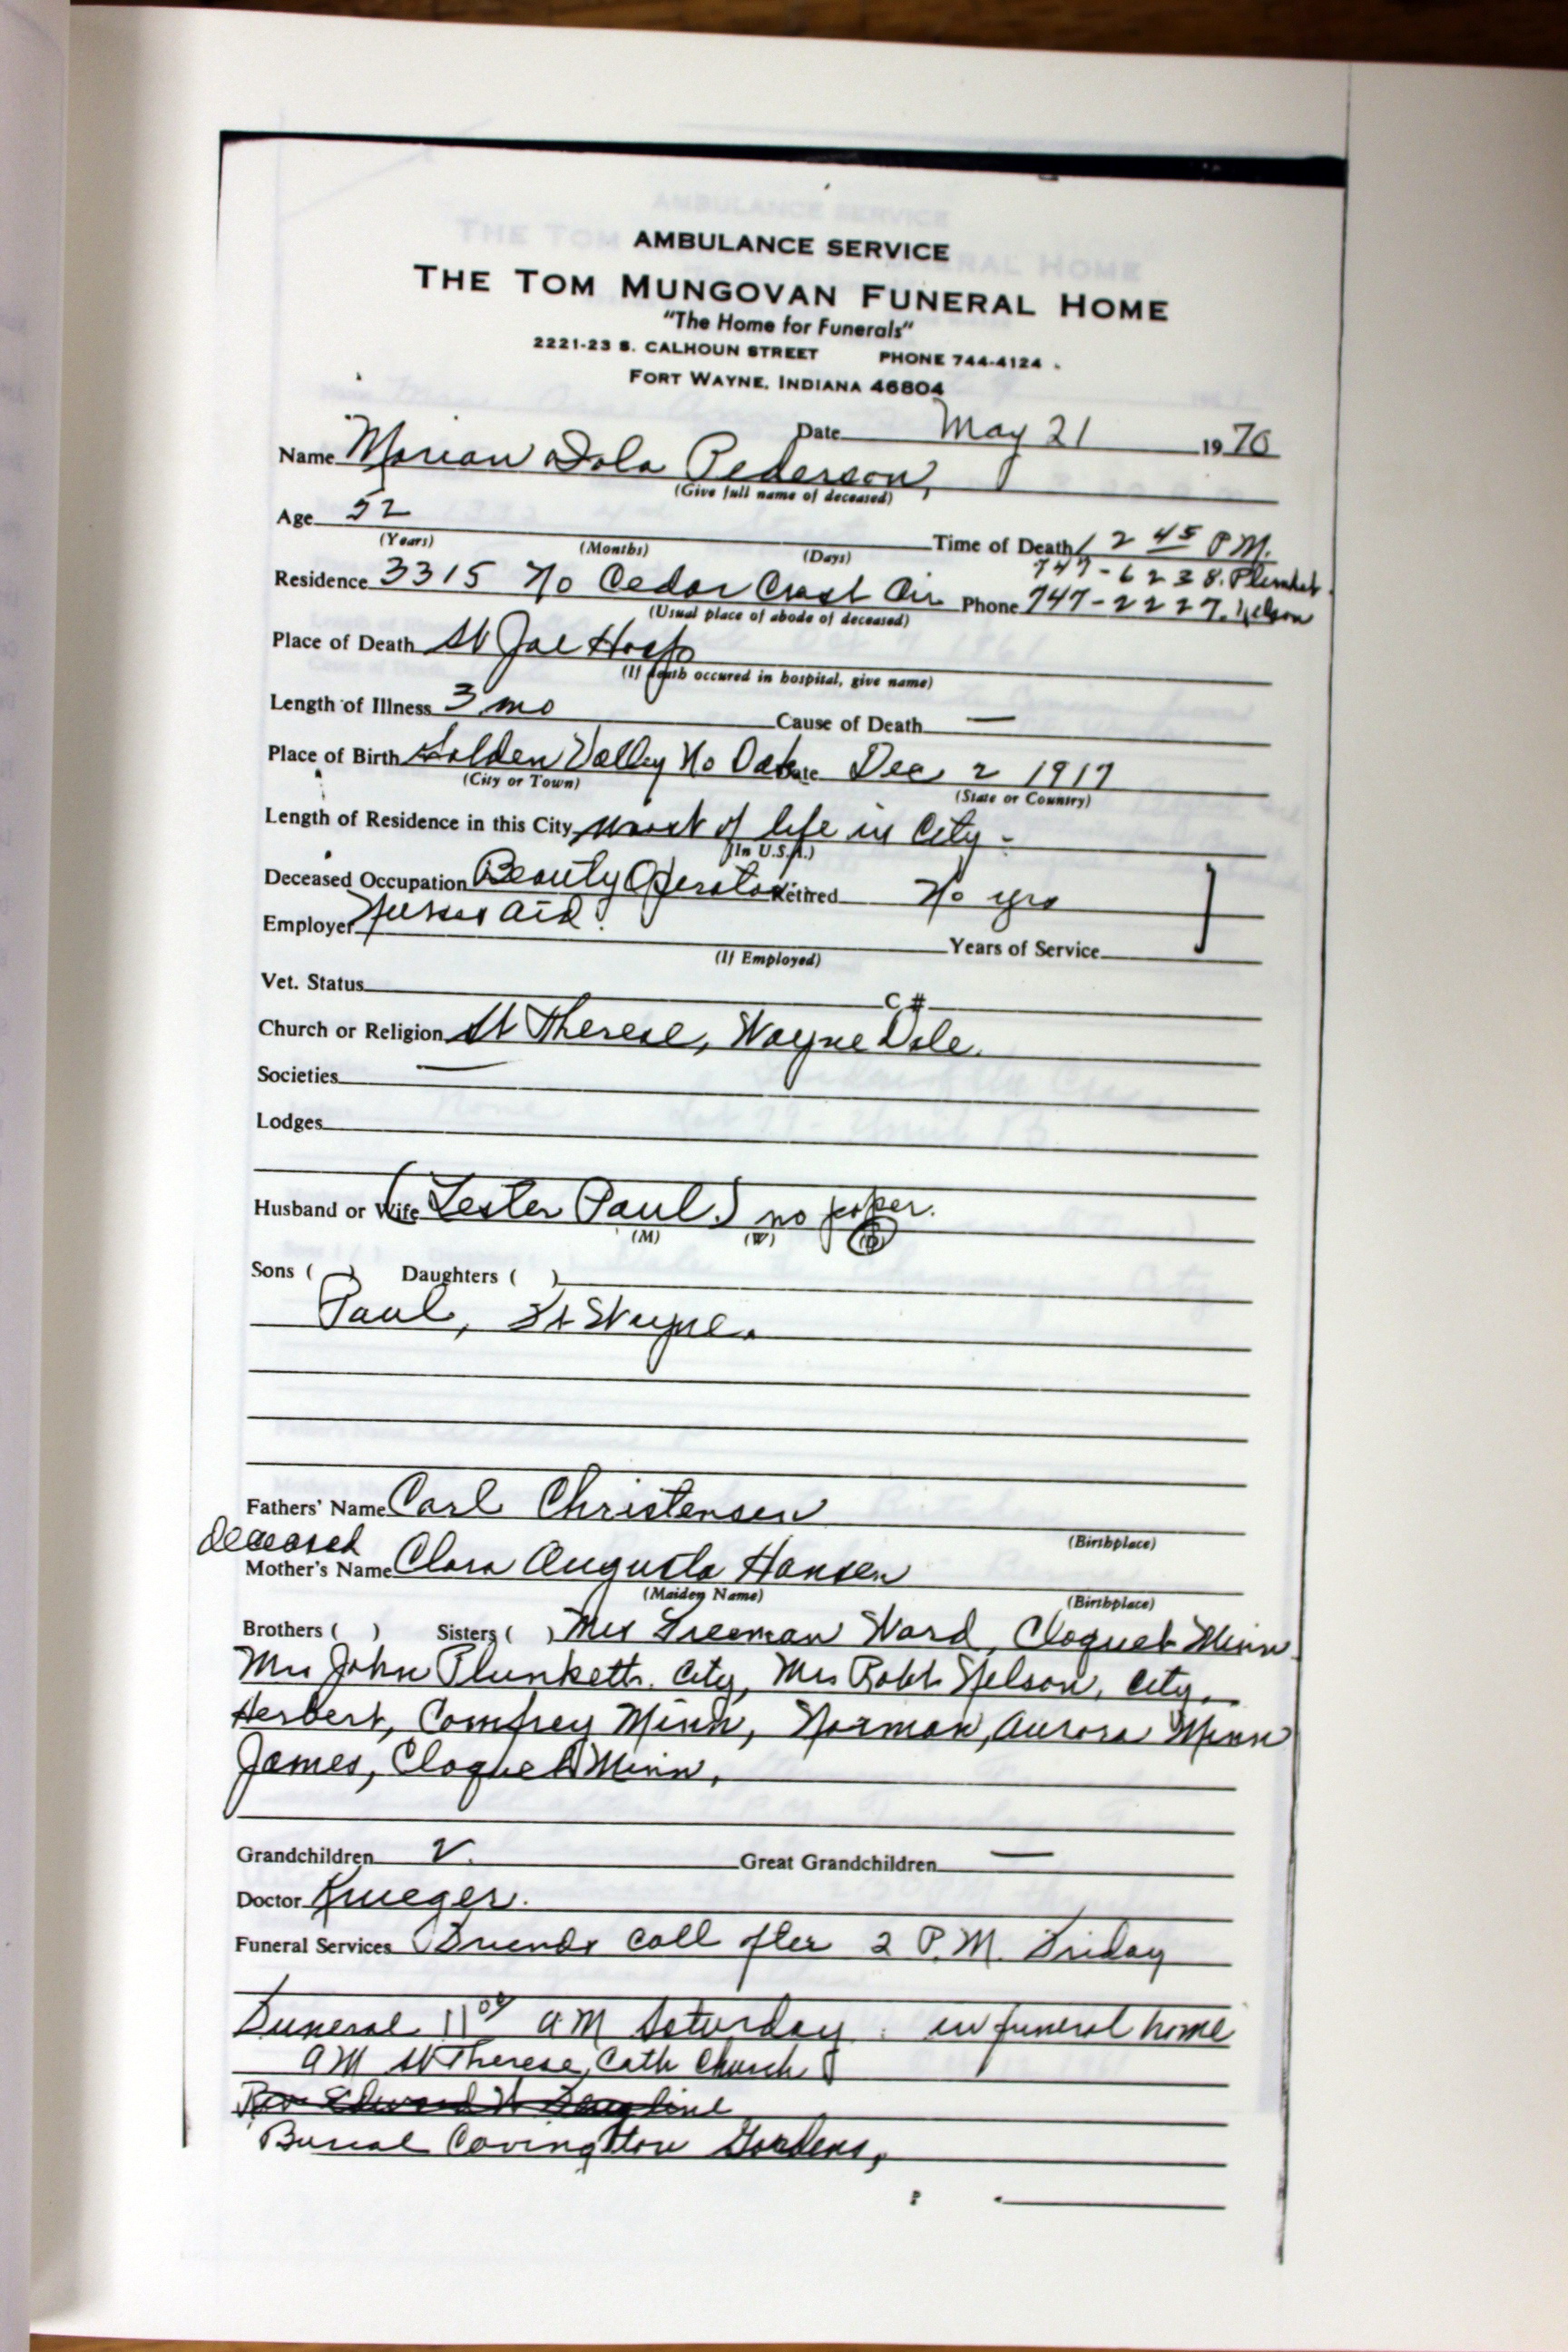 AMBULANCE SERVICE
THE TOM MUNGOVAN FUNERAL HOME
"The Home for Funerals"
2221-23 S. CALHOUN STREET PHONE 744-4124
FORT WAYNE, INDIANA 46804
Date May 21 1970
Name Marian Dola Pederson,
(Give full name of deceased)
Age 52 Time of Death 12 45 P.M.
(Years) (Months) (Days)
747-6238. Plunket
Residence 3315 No Cedar Crest Cir Phone 747-2227. Nelson
(Usual place of abode of deceased)
Place of Death St Joe Hosp
(If death occured in hospital, give name)
Length of Illness 3 mo Cause of Death —
Place of Birth Golden Valley No Dak Date Dec 2 1917
(City or Town) (State or Country)
Length of Residence in this City most of life in City -
(In U.S.A.)
Deceased Occupation Beauty Operator Retired No yrs
Employer Nurses Aid.
(If Employed) Years of Service
Vet. Status C #
Church or Religion St Therese, Wayne Dale.
Societies —
Lodges
Husband or Wife (Lester Paul) no paper.
(M) (W) (D)
Sons ( ) Daughters ( )
Paul, Ft Wayne.
Fathers' Name Carl Christensen
(Birthplace)
deceased
Mother's Name Clara Augusta Hansen
(Maiden Name) (Birthplace)
Brothers ( ) Sisters ( ) Mrs Freeman Ward, Cloquet Minn.
Mrs John Plunkett. City, Mrs Robt Nelson, City,
Herbert, Comfrey Minn, Norman, Aurora Minn
James, Cloquet Minn,
Grandchildren 2. Great Grandchildren —
Doctor Krueger.
Funeral Services Friends call after 2 P.M. Friday
Funeral 11 00 AM Saturday. in funeral home
AM St Therese, Cath Church
Rev Edward
Burial Covington Gardens,